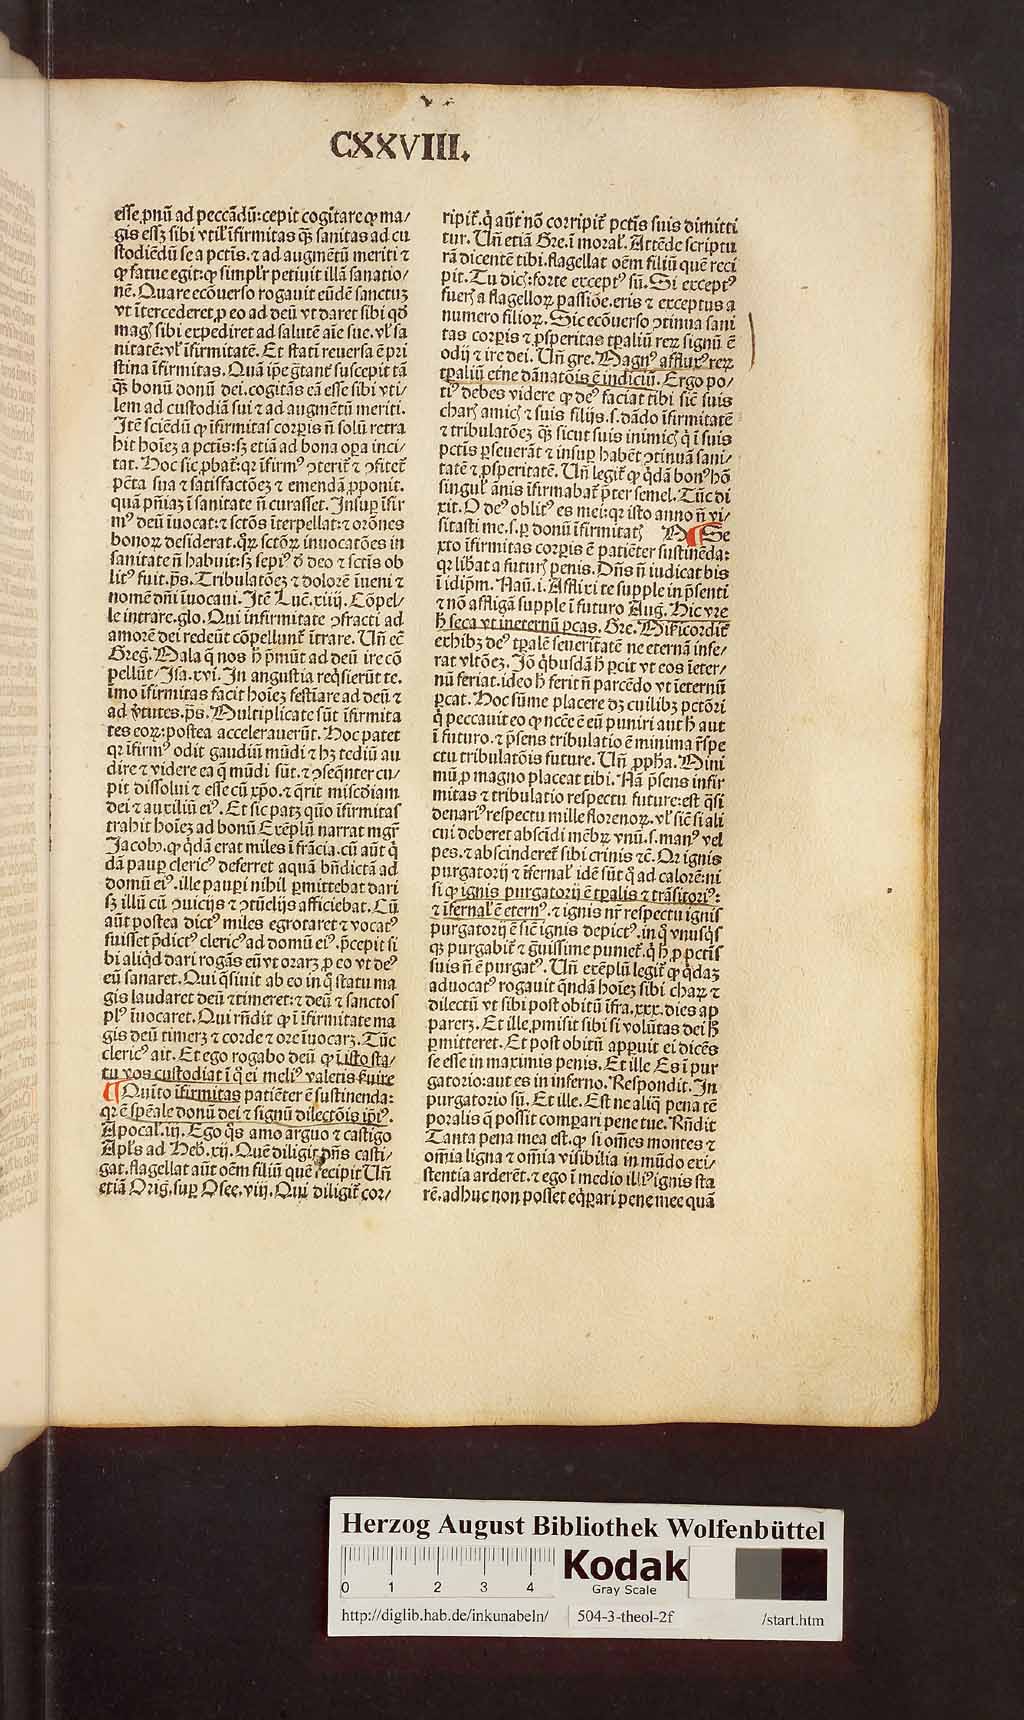 CXXVIII.
esse pnū ad peccādū: cepit cogitare ꝙ ma/
gis essꝫ sibi vtil' ĩfirmitas qꝫ sanitas ad cu
stodiēdū se a pctis. ⁊ ad augmētū meriti ⁊
ꝙ fatue egit: ꝙ simplr̄ petiuit illā sanatio/
nē. Quare ecōuerso rogauit eūdē sanctuꝫ
vt ĩtercederet ꝓ eo ad deū vt daret sibi qd̄
magꝭ sibi expediret ad salutē aīe sue. vl' sa
nitatē: vl' ĩfirmitatē. Et stati reuersa ē pri
stina ĩfirmitas. Quā ip̄e gtant̄ suscepit tā
qꝫ bonū donū dei. cogitās eā esse sibi vti/
lem ad custodiā sui ⁊ ad augmētū meriti.
Itē sciēdū ꝙ ĩfirmitas corpis nō solū retra
hit hoīeꝫ a pctis: sꝫ etiā ad bona oꝑa inci/
tat. Hoc sic ꝓbat̄: qꝛ ĩfirmꝰ ꝯterit̄ ⁊ ꝯfitet̄
pctā sua ⁊ satisfactōeꝫ ⁊ emendā ꝓponit.
quā pn̄iaꝫ ĩ sanitate nō curasset. Insuꝑ ĩfir
mꝰ deū ĩuocat: ⁊ sctōs ĩterpellat: ⁊ orōnes
bonoꝝ desiderat. qꝛ sctōꝝ inuocatōes in
sanitate n̄ habuit: sꝫ sepiꝰ d̄ deo ⁊ sctis ob
litꝰ fuit. p̄s. Tribulatōeꝫ ⁊ dolorē ĩueni ⁊
nomē dn̄i ĩuocaui. Itē Luc̄. xiiij. Cōpel/
le intrare. glo. Qui ĩnfirmitate ꝯfracti ad
amorē dei redeūt cōpellunt̄ ĩtrare. Un̄ ec̄
Greg. Mala q̄ nos h̄ p̄mūt ad deū ire cō
pellūt/ Isa. xvi. In angustia reqsierūt te.
ĩmo ĩfirmitas facit hoīeꝫ festīare ad deū ⁊
ad v̄tutes. p̄s. Multiplicate sūt ĩfirmita
tes eoꝝ: postea accelerauerūt. Hoc patet
qꝛ ĩfirmꝰ odit gaudiū mūdi ⁊ hꝫ tediū au
dire ⁊ videre ea q̄ mūdi sūt. ⁊ ꝯseqn̄ter cu/
pit dissolui ⁊ esse cū xp̄o. ⁊ qrit misc̄diam
dei ⁊ auxiliū eiꝰ. Et sic patꝫ quō ĩfirmitas
trahit hoīeꝫ ad bonū Exēplū narrat mgr̄
Jacobꝰ. ꝙ qdā erat miles ĩ frācia. cū aūt q
dā pauꝑ clericꝰ deferret aquā bn̄dictā ad
domū eiꝰ. ille pauꝑi nihil ꝑmittebat dari
sꝫ illū cū ꝯuicijs ⁊ ꝯtūelijs afficiebat. Cū
aūt postea dictꝰ miles egrotaret ⁊ vocatꝰ
fuisset p̄dictꝰ clericꝰ ad domū eiꝰ. p̄cepit si
bi aliqd dari rogās eū vt oraꝝ ꝓ eo vt deꝰ
eū sanaret. Qui qsiuit ab eo in q statu ma
gis laudaret deū ⁊ timeret: ⁊ deū ⁊ sanctos
plꝰ ĩuocaret. Qui rn̄dit ꝙ ĩ ĩfirmitate ma
gis deū timerꝫ ⁊ corde ⁊ ore ĩuocarꝫ. Tūc
clericꝰ ait. Et ego rogabo deū ꝙ ĩ isto sta/
tu vos custodiat ĩ q ei meliꝰ valetis suire
¶ Quĩto ĩfirmitas patiēter ē sustinenda:
qꝛ ē speāle donū dei ⁊ signū dilectōis ip̄iꝰ.
Apocal'. iij. Ego qs amo arguo ⁊ castigo
Apl's ad Heb̄. xij. Quē diligit dn̄s casti/
gat. flagellat aūt oēm filiū quē recipit Un̄
etiā Orig. suꝑ Osee. viij. Qui diligit̄ cor/
ripit̄. q aūt nō corripit̄ pctis suis dimitti
tur. Un̄ etiā Gre. ĩ moral'. Attēde scriptu
rā dicentē tibi. flagellat oēm filiū quē reci
pit. Tu dicꝭ: forte exceptꝰ sū. Si exceptꝰ
fuerꝭ a flagelloꝝ passiōe. eris ⁊ exceptus a
numero filioꝝ. Sic ecōuerso ꝯtinua sani
tas corꝑis ⁊ ꝓsperitas tꝑaliū reꝝ signū ē
odij ⁊ ire dei. Un̄ gre. Magnꝰ affluxꝰ reꝝ
tꝑaliū etne dānatōis ē indiciū. Ergo po/
tiꝰ debes videre ꝙ deꝰ faciat tibi sic̄ suis
charꝭ amicꝭ ⁊ suis filijs. s. dādo ĩfirmitatē
⁊ tribulatōeꝫ qꝫ sicut suis inimicꝭ q ĩ suis
pctis ꝑseuerāt ⁊ insuꝑ habēt ꝯtinuā sani/
tatē ⁊ ꝓsperitatē. Un̄ legit̄ ꝙ qdā bonꝰ hō
singul' ānis ĩfirmabat̄ p̄ter semel. Tūc di
xit. O deꝰ oblitꝰ es mei: qꝛ isto anno n̄ vi/
sitasti me. s. ꝑ donū ĩfirmitatꝭ ¶ Se
xto ĩfirmitas corꝑis ē patiēter sustinēda:
qꝛ libat a futurꝭ penis. Dn̄s n̄ iudicat bis
ĩ idip̄m. Naū. i. Afflixi te supple in p̄senti
⁊ nō affligā supple ĩ futuro Aug. Hic vre
h̄ seca vt ineternū ꝑcas. Gre. Mĩsericordit̄
exhibꝫ deꝰ tꝑalē seueritatē ne eternā infe/
rat vltōeꝫ. Iō qbusdā h̄ ꝑcit vt eos ĩeter/
nū feriat. ideo h̄ ferit n̄ parcēdo vt ĩeternū
ꝑcat. Hoc sūme placere dꝫ cuilibꝫ pctōri
q peccauit eo ꝙ ncc̄e ē eū puniri aut h̄ aut
ĩ futuro. ⁊ p̄sens tribulatio ē minima r̄spe
ctu tribulatōis future. Un̄ ꝓpha. Mini
mū ꝓ magno placeat tibi. Nā p̄sens infir
mitas ⁊ tribulatio respectu future: est qsi
denariꝰ respectu mille florenoꝝ. vl' sic̄ si ali
cui deberet abscīdi mēbꝝ vnū. s. manꝰ vel
pes. ⁊ abscinderet̄ sibi crinis ⁊c̄. Qꝛ ignis
purgatorij ⁊ ĩfernal' idē sūt q ad calorē: ni
si ꝙ ignis purgatorij ē tꝑalis ⁊ trāsitoriꝰ:
⁊ ĩfernal' ē eternꝰ. ⁊ ignis nr̄ respectu ignis
purgatorij ē sic̄ ignis depictꝰ. in q vnusqs
qꝫ purgabit̄ ⁊ grauissime puniet̄. q h̄ ꝓ pctis
suis n̄ ē purgatꝰ. Un̄ exēplū legit̄ ꝙ qdaꝫ
aduocatꝰ rogauit qndā hoīeꝫ sibi charꝫ ⁊
dilectū vt sibi post obitū ĩfra. xxx. dies ap
parerꝫ. Et ille. ꝓmisit sibi si volūtas dei h̄
ꝑmitteret. Et post obitū apꝑuit ei dicēs
se esse in maximis penis. Et ille Es ĩ pur
gatorio: aut es in inferno. Respondit. In
purgatorio sū. Et ille. Est ne aliq pena tē
poralis q possit compari pene tue. Rn̄dit
Tanta pena mea est. ꝙ si om̄es montes ⁊
om̄ia ligna ⁊ om̄ia visibilia in mūdo exi/
stentia arderēt. ⁊ ego ĩ medio illiꝰ ignis sta
rē. adhuc non posset eqꝑari pene mee quā
Herzog August Bibliothek Wolfenbüttel
0 1 2 3 4
Kodak
Gray Scale
http://diglib.hab.de/inkunabeln/ 504-3-theol-2f /start.htm